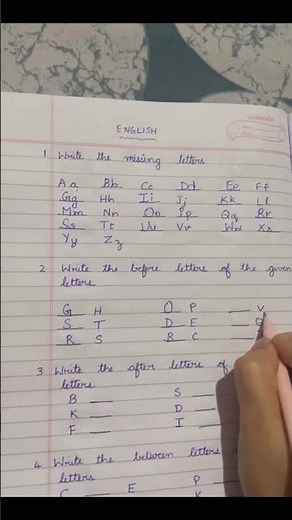 ENGLISH
1 Write the missing letters
Aa Bb Cc Dd Ee Ff
Gg Hh Ii Jj Kk Ll
Mm Nn Oo Pp Qq Rr
Ss Tt Uu Vv Ww Xx
Yy Zz
2 Write the before letters of the given
letters
G H O P __ V
S T D E __
R S B C __
3 Write the after letters of
letters
B __ S __
K __ D __
F __ I __
4 Write the between letters
letters
C __ E P __